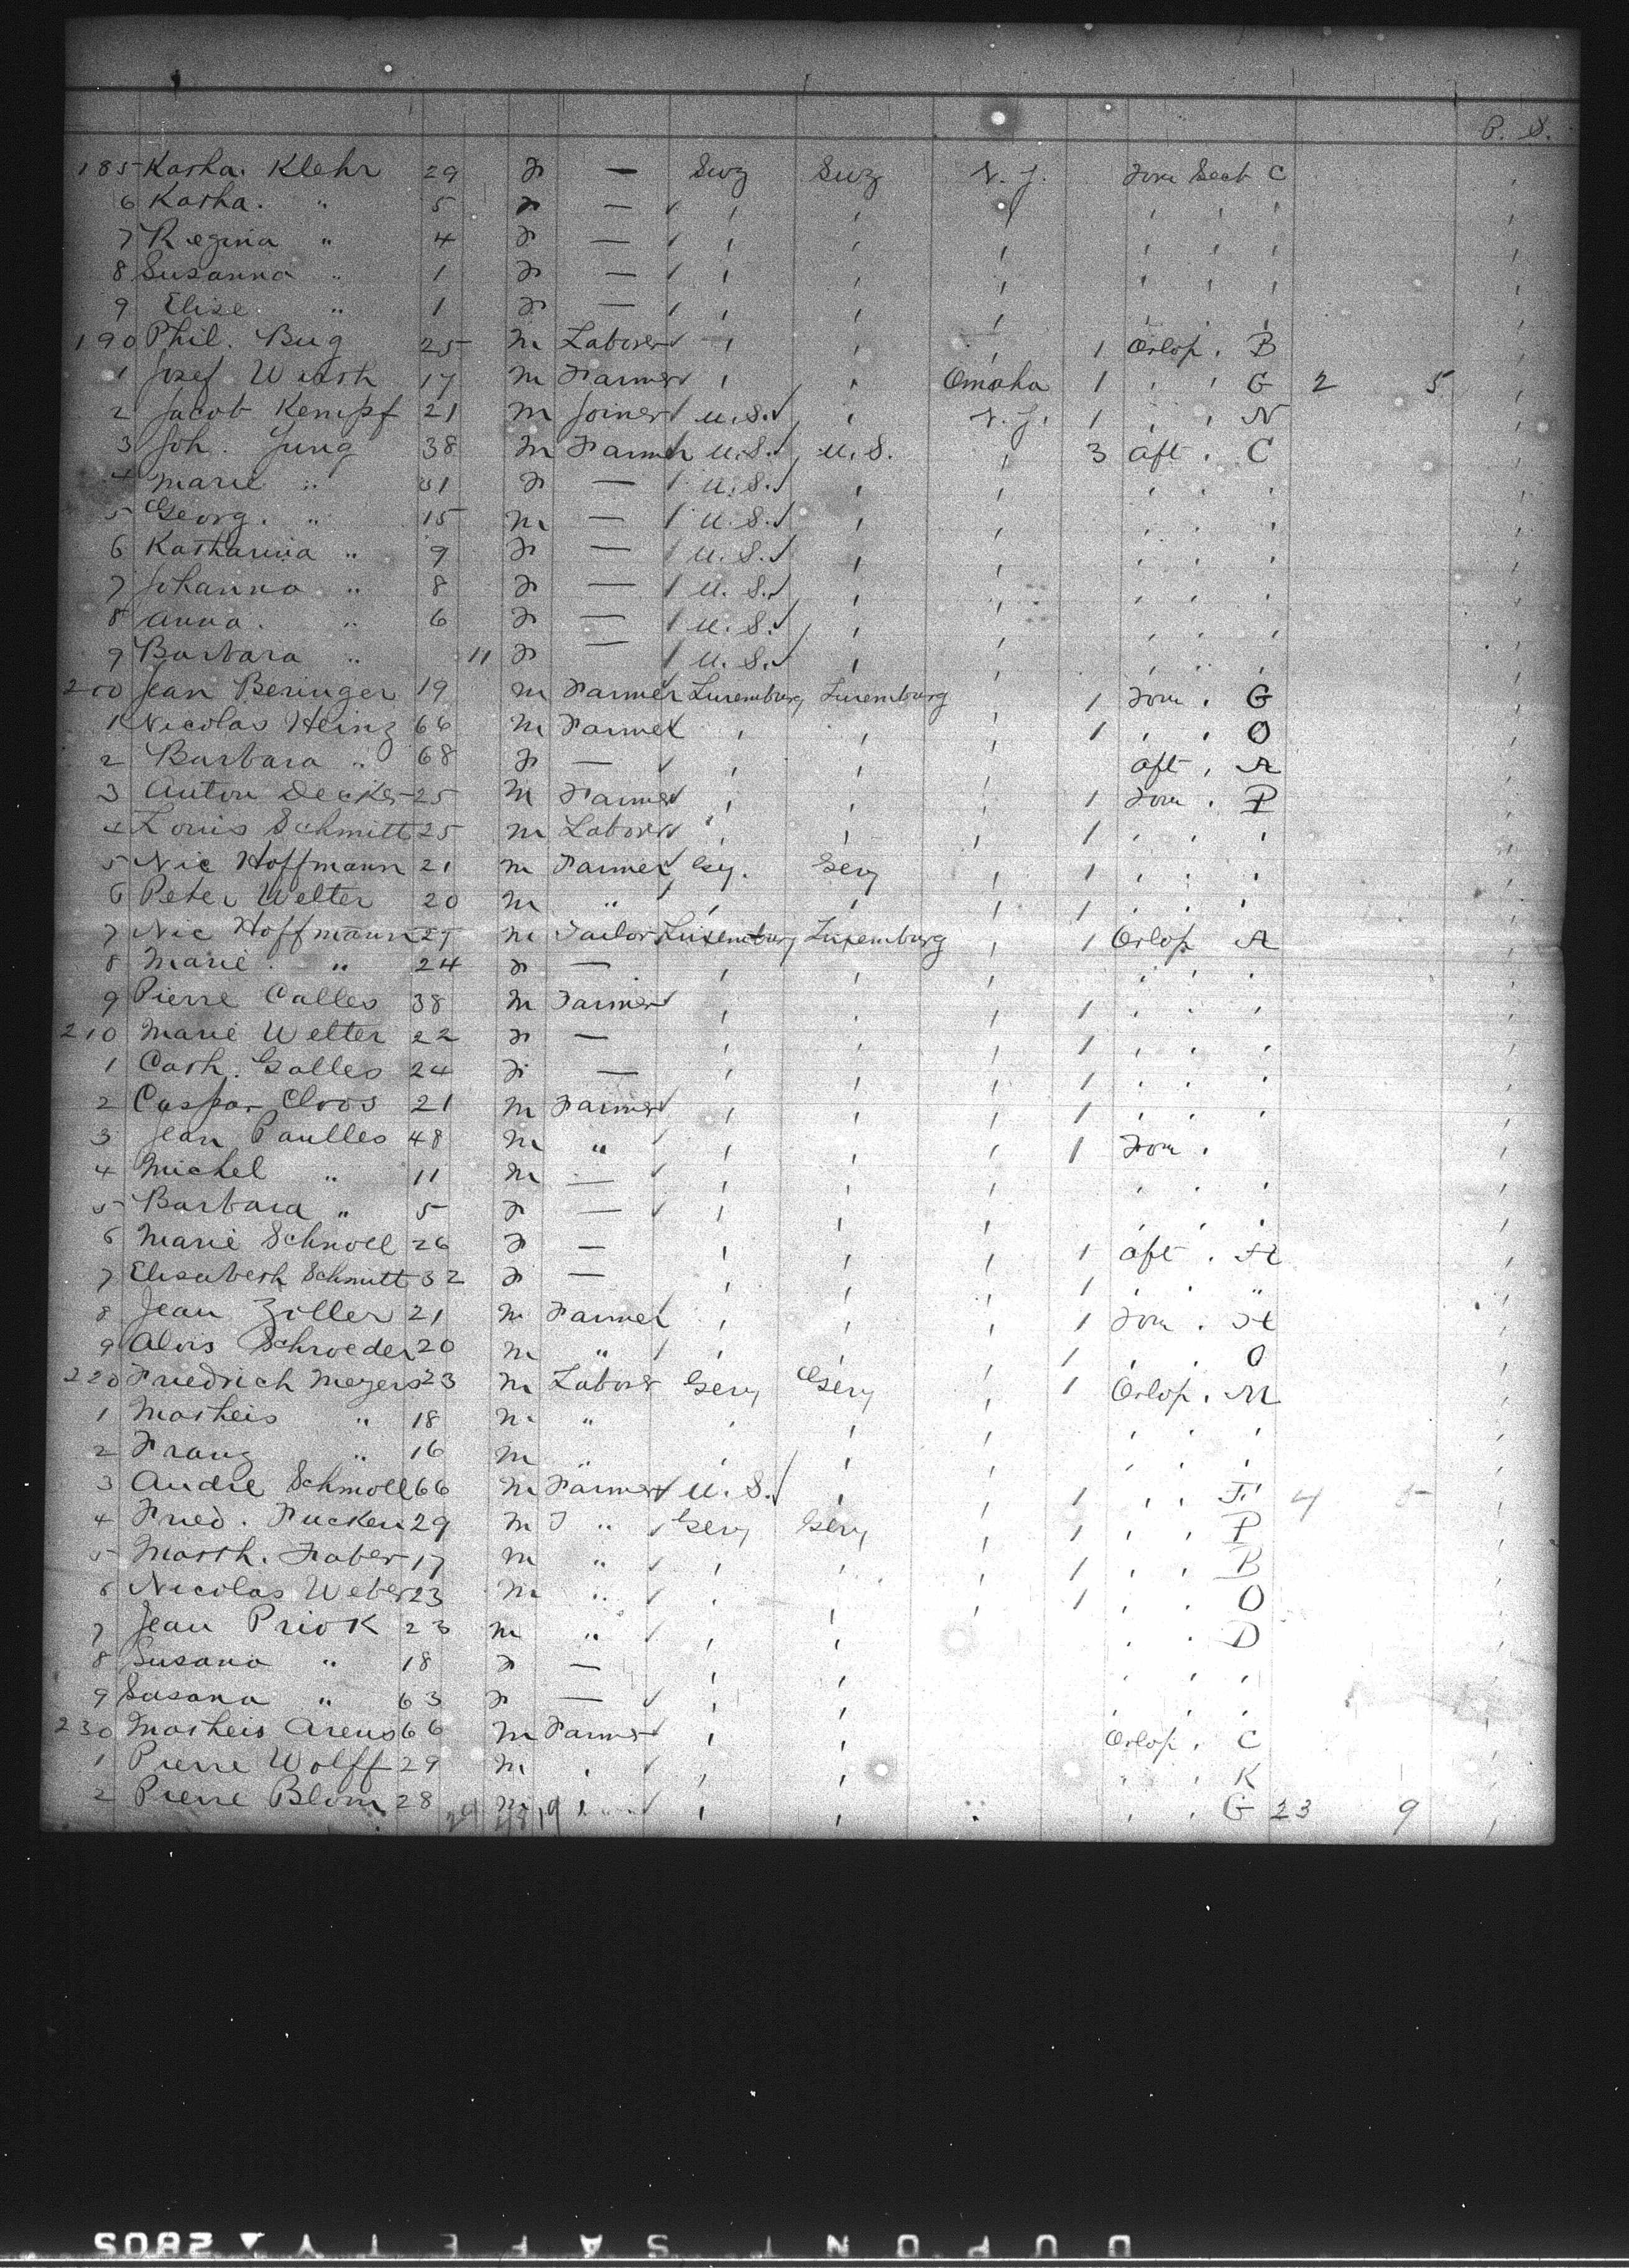 P. S.
185 Katha. Klehr 29 F — Swz Swz N. Y. Forw Sect C '
6 Katha. " 5 F — ' ' ' ' ' ' '
7 Regina " 4 F — ' ' ' ' ' ' '
8 Susanna " 1 F — ' ' ' ' ' ' '
9 Elise " 1 F — ' ' ' ' ' ' '
190 Phil. Bug 25 M Laborer ' ' ' 1 Orlop ' B '
1 Josef Werth 17 M Farmer ' ' Omaha 1 ' ' G 2 5 '
2 Jacob Kempf 21 M Joiner U.S. ' N. Y. 1 ' ' N '
3 Joh. Jung 38 M Farmer U.S. U.S. ' 3 Aft ' C '
4 Marie " 31 F — U.S. ' ' ' ' ' '
5 Georg. " 15 M — U.S. ' ' ' ' ' '
6 Katharina " 9 F — U.S. ' ' ' ' ' '
7 Johanna " 8 F — U.S. ' ' ' ' ' '
8 Anna. " 6 F — U.S. ' ' ' ' ' '
9 Barbara " 11 F — U.S. ' ' ' ' ' '
200 Jean Beringer 19 M Farmer Luxemburg Luxemburg ' 1 Forw ' G '
1 Nicolas Heinz 66 M Farmer ' ' ' 1 ' ' O '
2 Barbara " 68 F — ' ' ' Aft ' A '
3 Anton Decker 25 M Farmer ' ' ' 1 Forw ' P '
4 Louis Schmitt 25 M Laborer ' ' ' 1 ' ' ' '
5 Nic Hoffmann 21 M Farmer Gey. Gery ' 1 ' ' ' '
6 Peter Welter 20 M " ' ' ' 1 ' ' ' '
7 Nic Hoffmann 27 M Tailor Luxemburg Luxemburg ' 1 Orlop A '
8 Marie. " 24 F — ' ' ' ' ' ' '
9 Pierre Calles 38 M Farmer ' ' ' 1 ' ' ' '
210 Marie Welter 22 F — ' ' ' 1 ' ' ' '
1 Cath. Galles 24 F — ' ' ' 1 ' ' ' '
2 Caspar Cloos 21 M Farmer ' ' ' 1 ' ' ' '
3 Jean Paulles 48 M " ' ' ' 1 Forw '
4 Michel " 11 M — ' ' ' ' ' ' '
5 Barbara " 5 F — ' ' ' ' ' ' '
6 Marie Schnoell 26 F — ' ' ' 1 Aft ' H '
7 Elisabeth Schmitt 32 F — ' ' ' 1 ' ' " '
8 Jean Ziller 21 M Farmer ' ' ' 1 Forw ' H '
9 Alois Schroeder 20 M " ' ' ' 1 ' ' O '
220 Friedrich Meyers 23 M Laborer Gery Gery ' 1 Orlop ' M '
1 Matheis " 18 M " ' ' ' ' ' ' '
2 Franz " 16 M " ' ' ' ' ' ' '
3 Andre Schmoell 66 M Farmer U.S. ' ' 1 ' ' F 4 5 '
4 Fried. Fucken 29 M " Gery Gery ' 1 ' ' P '
5 Matth. Faber 17 M " ' ' ' 1 ' ' B '
6 Nicolas Weber 23 M " ' ' ' 1 ' ' O '
7 Jean Priok 23 M " ' ' ' ' D '
8 Susana " 18 F — ' ' ' ' ' '
9 Susana " 63 F — ' ' ' ' ' '
230 Matheis Arens 66 M Farmer ' ' Orlop ' C '
1 Pierre Wolff 29 M ' ' ' " ' K '
2 Pierre Blom 28 M ' ' ' ' ' G 23 9 '
DUPONT SAFETY 2805